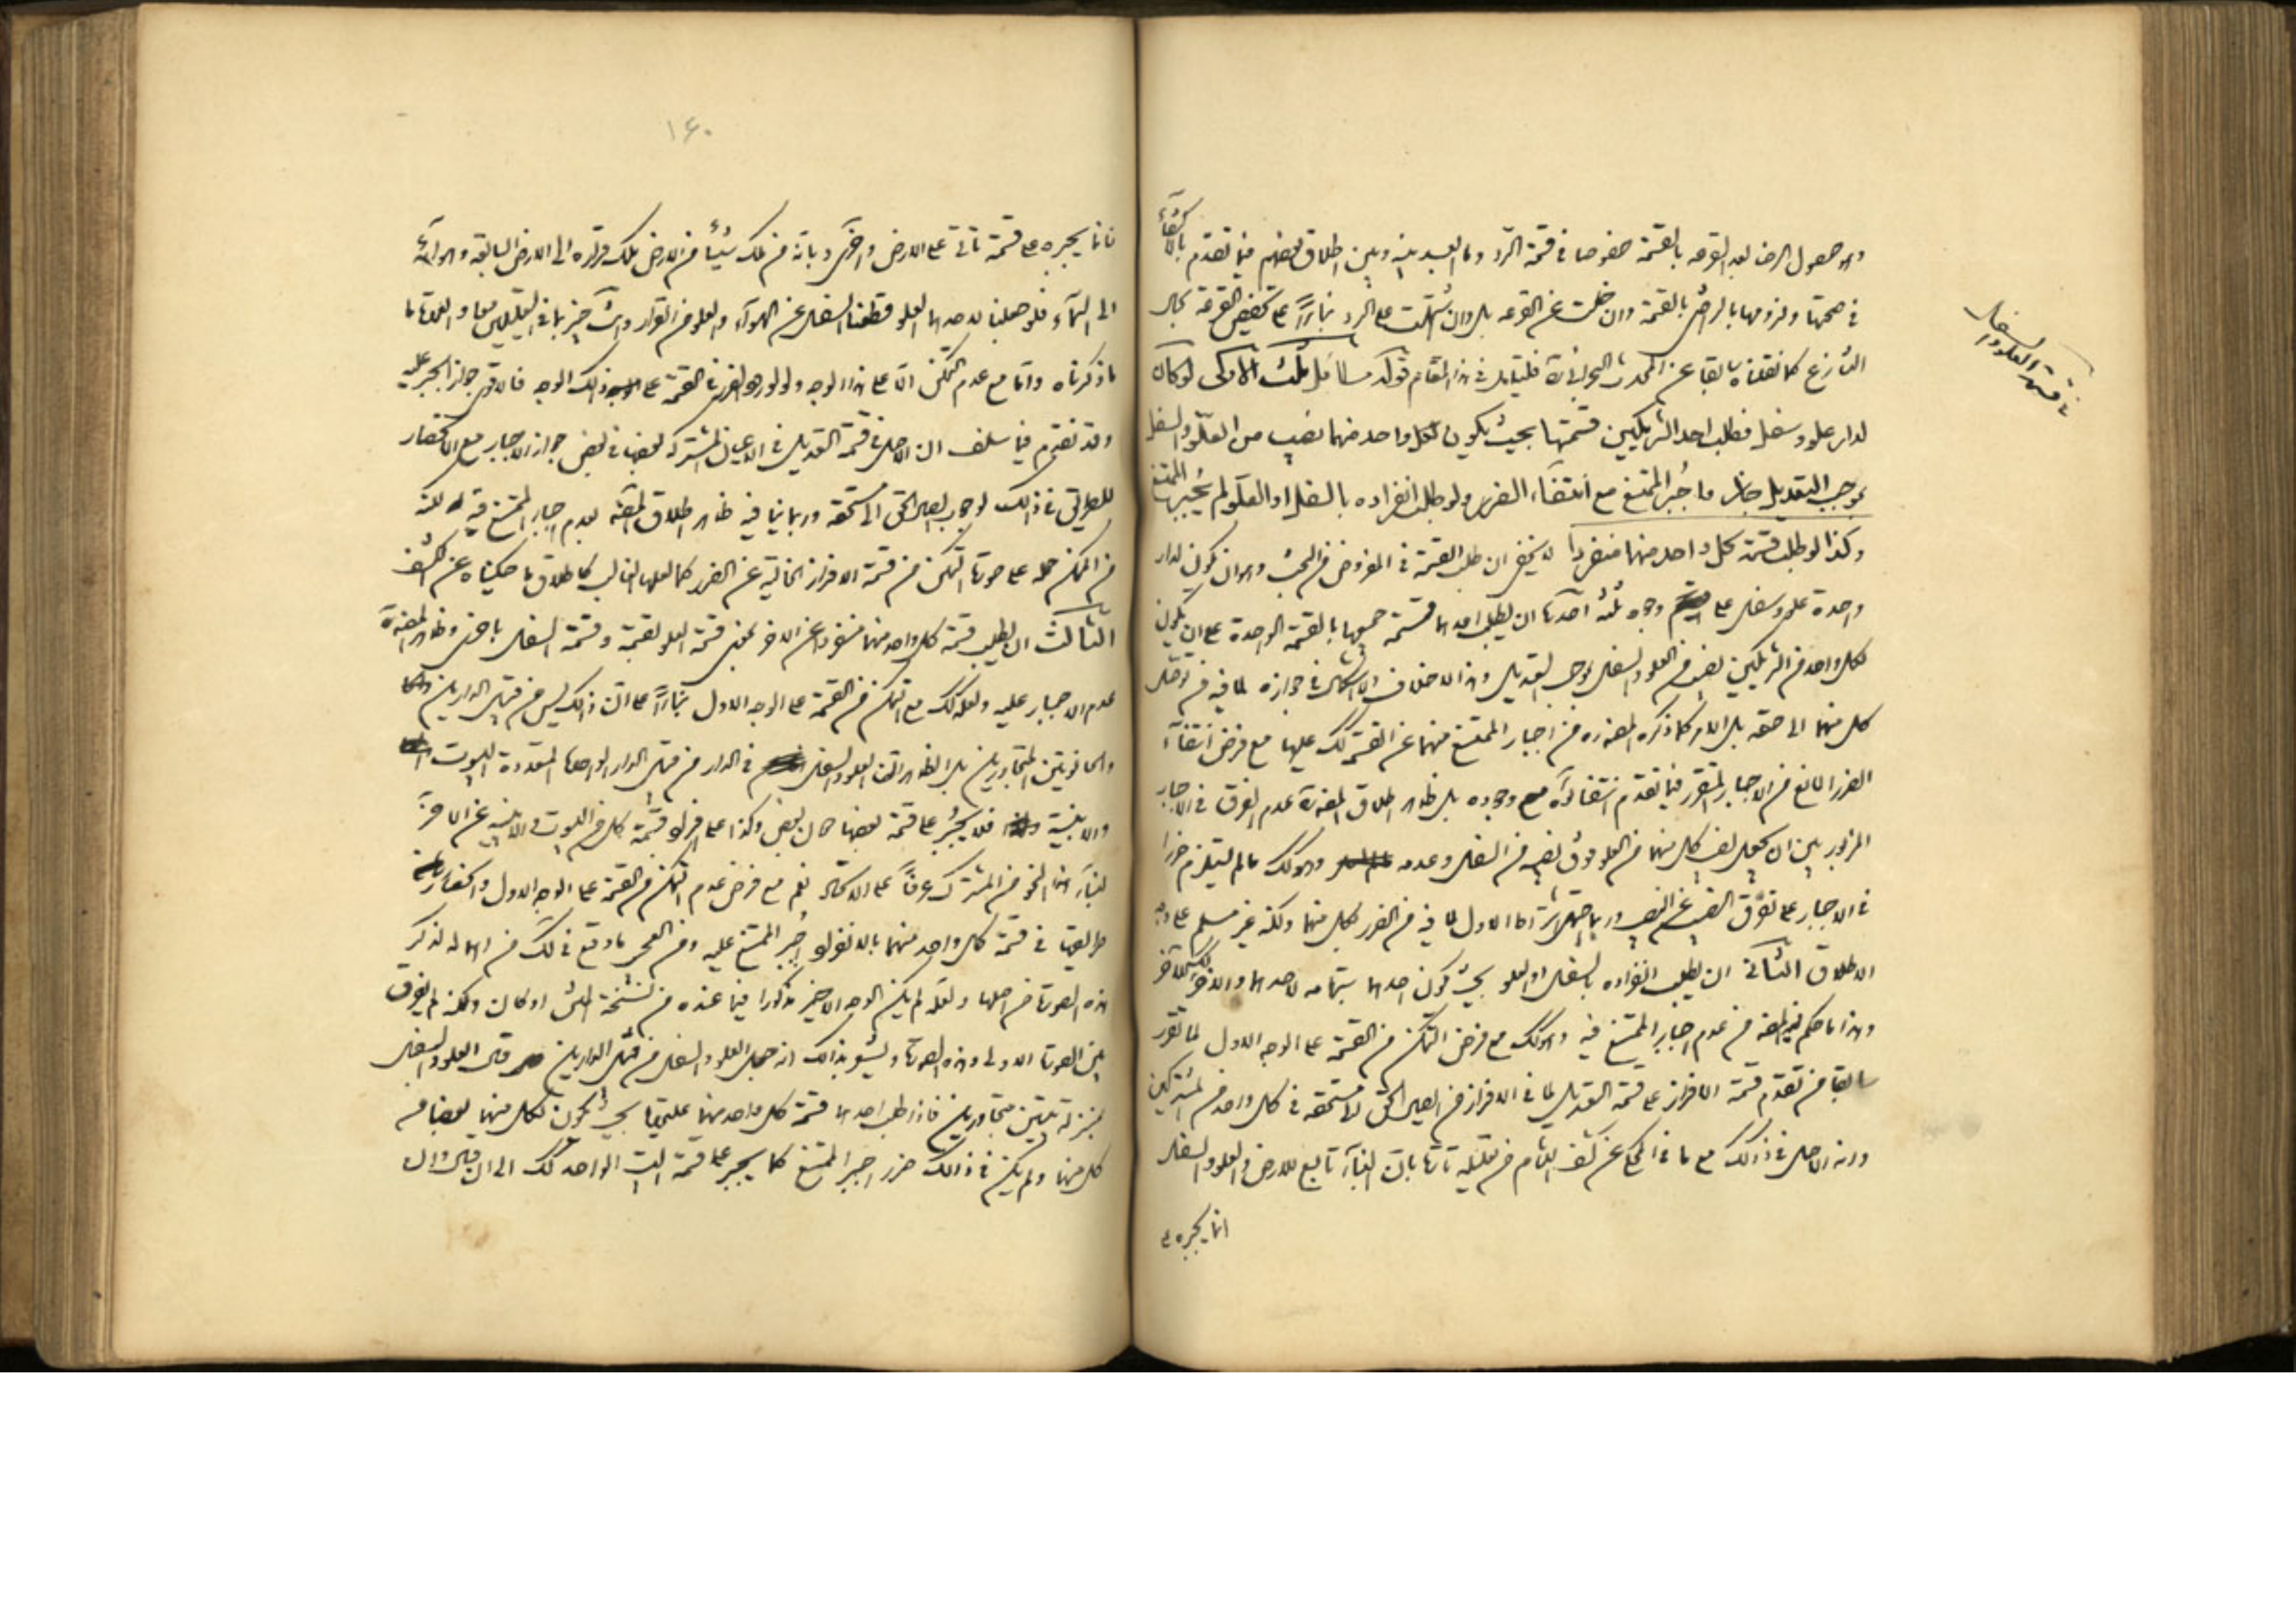 وهو حصول الرضا بعد القرعه بالقسمة خصوصا في قسمة الرد وما ابعد بينه وبين اطلاق بعضهم فيما تقدم بالاكتفاء
في صحتها ولزومها بالرضا بالقسمة وان خلت عن القرعه بل وان اشتملت على الرد بناءً على تخصيص القرعة بحال
التنازع كما نقلناه سابقا عن المحدث البحراني فليتأمل في هذا المقام قوله مسائل ثلث الاولى لو كان
لدار علو وسفل فطلب احد الشريكين قسمتها بحيث يكون لكل واحد منهما نصيب من العلو والسفل
بموجب التعديل جاز واجبر الممتنع مع انتفاء الضرر ولو طلب انفراده بالسفل او العلو لم يجبر الممتنع
وكذا لو طلب قسمة كل واحد منهما منفردا لا يخفى ان طلب القسمة في المفروض من البحث وهو ان يكون لدار
واحدة علو وسفل على وجوه ثلثة احدها ان يطلب احدهما قسمة جميعها بالقسمة الواحدة على ان يكون
لكل واحد من الشريكين نصيب من العلو والسفل بموجب التعديل وهذا لا خلاف ولا اشكال في جوازه لما فيه من توصل
كل منهما الى حقه بل الامر كما ذكره المصنف ره من اجبار الممتنع منهما عن القسمة كك عليها مع فرض انتفاء
الضرر المانع من الاجبار المتقرر فيما تقدم انتفاؤه مع وجوده بل ظاهر اطلاق المصنف ره عدم الفرق في الاجبار
المزبور بين ان يجعل نصيب كل منهما من العلو فوق نصيبه من السفل وعدمه وهو كك ما لم يستلزم ضررا
في الاجبار على تفرق النصيب عن النصيب وربما جهل اشتراط الاول لما فيه من الضرر لكل منهما ولكنه غير مسلم على وجه
الاطلاق الثاني ان يطلب انفراده بالسفل او العلو بحيث يكون احدهما بتمامه لاحدهما والاخر للآخر
وهذا ما حكم فيه المصنف من عدم اجبار الممتنع فيه وهو كك مع فرض التمكن من القسمة على الوجه الاول لما تقرر
سابقا من تقدم قسمة الافراز على قسمة التعديل لما في الافراز من ايصال الحق لمستحقه في كل واحد من المشتركين
وانه الاصل في ذلك مع ما في المحكي عن كشف اللثام من تعليله تارة بان البناء تابع للارض والعلو والسفل
انما يجبره
في قسمة العلو والسفل
١٤٠
فانما يجبره على قسمة تأتي على الارض واخرى بانه من ملك شيئا من الارض ملك قراره الى الارض السابعة وهوائه
الى السماء فلو جعلنا لاحدهما العلو قطعنا السفل عن الهواء والعلو من القرار وانت خبير بما في التعليلين معا والعمدة ما
ما ذكرناه واما مع عدم التمكن الا على هذا الوجه ولو لورود الضرر في القسمة على ذلك الوجه فالاقوى جواز الجبر عليه
وقد تقدم فيما سلف ان الاصل في قسمة التعديل في الاعيان المشتركة بعضها في بعض جواز الاجبار مع الانحصار
للطريق في ذلك لوجوب ايصال الحق الى مستحقه وربما ينافيه ظاهر اطلاق المصنف بعدم اجبار الممتنع فيه لكنه
من الممكن حمله على صورة التمكن من قسمة الافراز الخالية عن الضرر كما لعلها الغالب كاطلاق ما حكيناه عن الكشف
الثالث ان يطلب قسمة كل واحد منهما منفردا عن الاخر بمعنى قسمة العلو بقسمة وقسمة السفل باخرى وظاهر المصنف ره
عدم الاجبار عليه ولعله كك مع التمكن من القسمة على الوجه الاول بناءً على ان ذلك ليس من قبيل الدارين
والحانوتين المتجاورين بل الظاهر ان العلو والسفل في الدار من قبيل الدار الواحدة المتعددة البيوت
والابنية فلا يجبر على قسمة بعضها حال بعض وكذا على افراد قسمة كل من البيوت والابنية عن الآخر
لبناء هذا النحو من المشترك عرفاً على الاتحاد نعم مع فرض عدم التمكن من القسمة على الوجه الاول وانحصار
طريقها في قسمة كل واحد منهما بالانفراد اجبر الممتنع عليه ومن العجب ما وقع في لك من اهماله لذكر
هذه الصورة من اصلها ولعله لم يكن الوجه الاخير مذكورا فيما عنده من نسخة المتن او كان ولكنه لم يفرق
بين الصورة الاولى وهذه الصورة ويشعر بذلك انه جعل العلو والسفل من قبيل الدارين قال العلو والسفل
بمنزلة بيتين متجاورين فاذا طلب احدهما قسمة كل واحد منهما عليهما بحيث يكون لكل منهما بعضا من
كل منهما ولم يكن في ذلك ضرر اجبر الممتنع كما يجبر على قسمة البيت الواحد كك الى ان قال وان